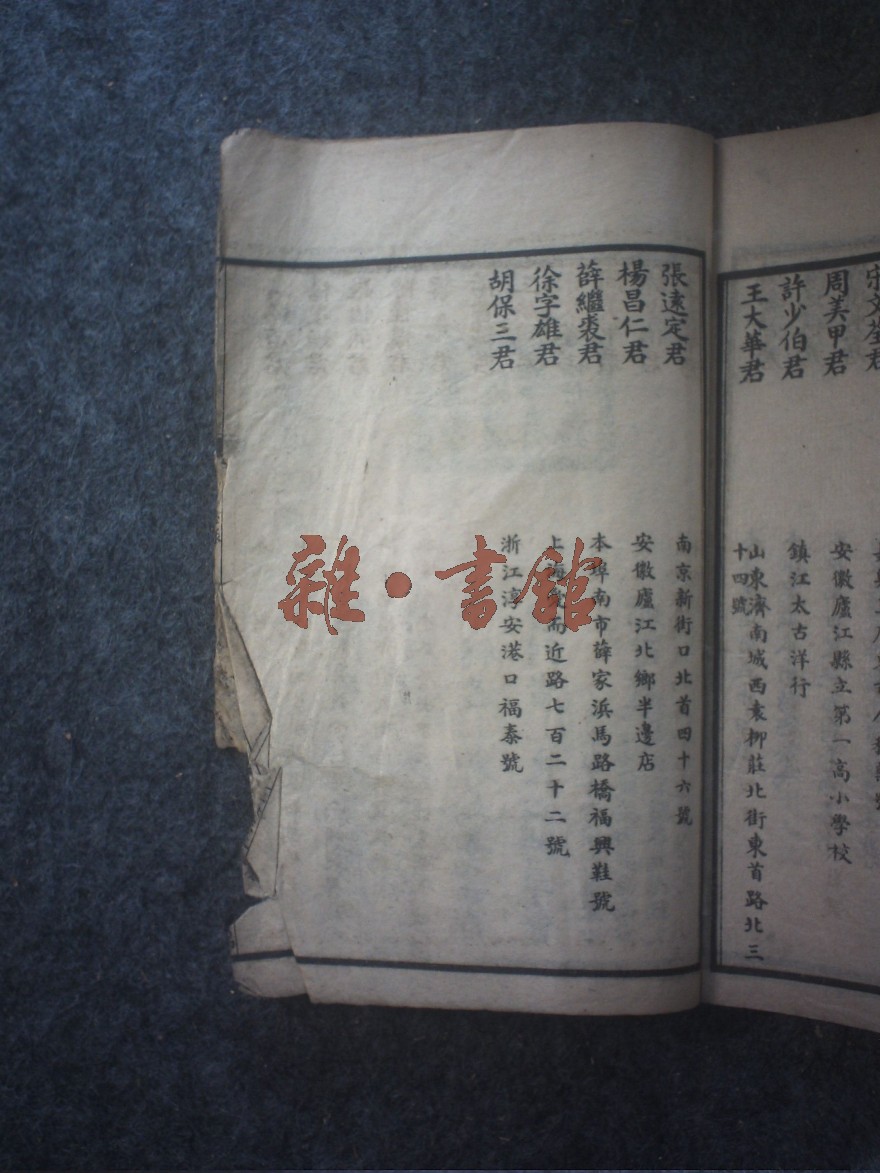 宋文荃君
周美甲君 安徽廬江縣立第一高小學校
許少伯君 鎮江太古洋行
王大華君 山東濟南城西袁柳莊北街東首路北三
十四號
張遠定君 南京新街口北首四十六號
楊昌仁君 安徽廬江北鄉半邊店
薛繼裘君 本埠南市薛家浜馬路橋福興鞋號
徐字雄君 上海近路七百二十二號
胡保三君 浙江淳安港口福泰號
雜·書館